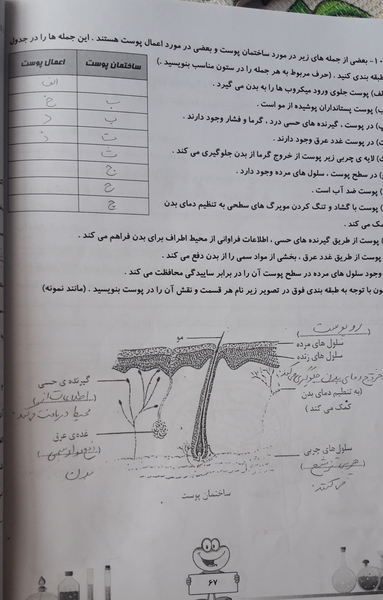 ۱۰- بعضی از جمله های زیر در مورد ساختمان پوست و بعضی در مورد اعمال پوست هستند . این جمله ها را در جدول
طبقه بندی کنید . (حرف مربوط به هر جمله را در ستون مناسب بنویسید .)
الف) پوست جلوی ورود میکروب ها را به بدن می گیرد .
پوست پستانداران پوشیده از مو است .
در پوست ، گیرنده های حسی درد ، گرما و فشار وجود دارند .
در پوست غدد عرق وجود دارند .
لایه ی چربی زیر پوست از خروج گرما از بدن جلوگیری می کند .
در سطح پوست ، سلول های مرده وجود دارد .
پوست ضد آب است .
پوست با گشاد و تنگ کردن مویرگ های سطحی به تنظیم دمای بدن
کمک می کند .
پوست از طریق گیرنده های حسی ، اطلاعات فراوانی از محیط اطراف برای بدن فراهم می کند .
پوست از طریق غدد عرق ، بخشی از مواد سمی را از بدن دفع می کند .
وجود سلول های مرده در سطح پوست آن را در برابر ساییدگی محافظت می کند .
با توجه به طبقه بندی فوق در تصویر زیر نام هر قسمت و نقش آن را در پوست بنویسید . (مانند نمونه)
ساختمان پوست اعمال پوست
الف
ب خ
پ د
ت ذ
ث
ج
ح
چ
مو
روپوست
سلول های مرده
سلول های زنده
(به تنظیم دمای بدن
کمک می کند )
گیرنده ی حسی
اطلاعات را از
محیط دریافت می کند
غده ی عرق
دفع مواد سمی
بدن
سلول های چربی
ساختمان پوست
۶۷